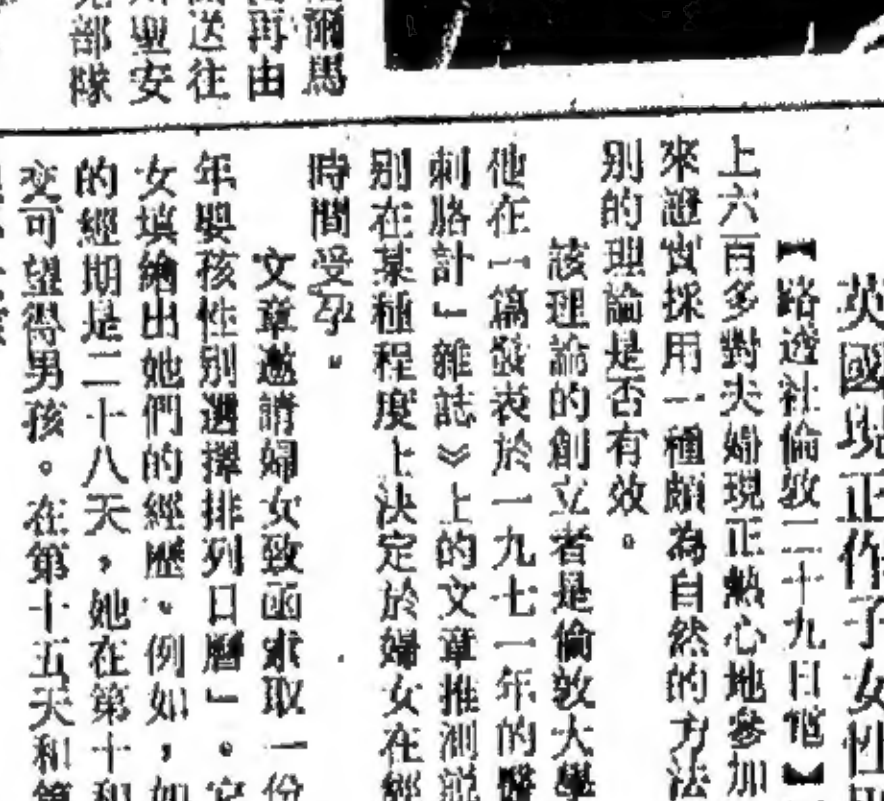 英國現正作子女性別
【路透社倫敦二十九日電】
上六百多對夫婦現正熱心地參加
來證實採用一種頗為自然的方法
別的理論是否有效。
該理論的創立者是倫敦大學
他在一篇發表於一九七一年的醫
刺胳計」雜誌》上的文章推測說
別在某種程度上決定於婦女在經
時間受孕。
文章邀請婦女致函索取一份
年嬰孩性別選擇排列日曆」。它
女填繪出她們的經歷。例如,如
的經期是二十八天,她在第十和
交可望得男孩。在第十五天和第
爾馬
再由
送往
聖安
部隊